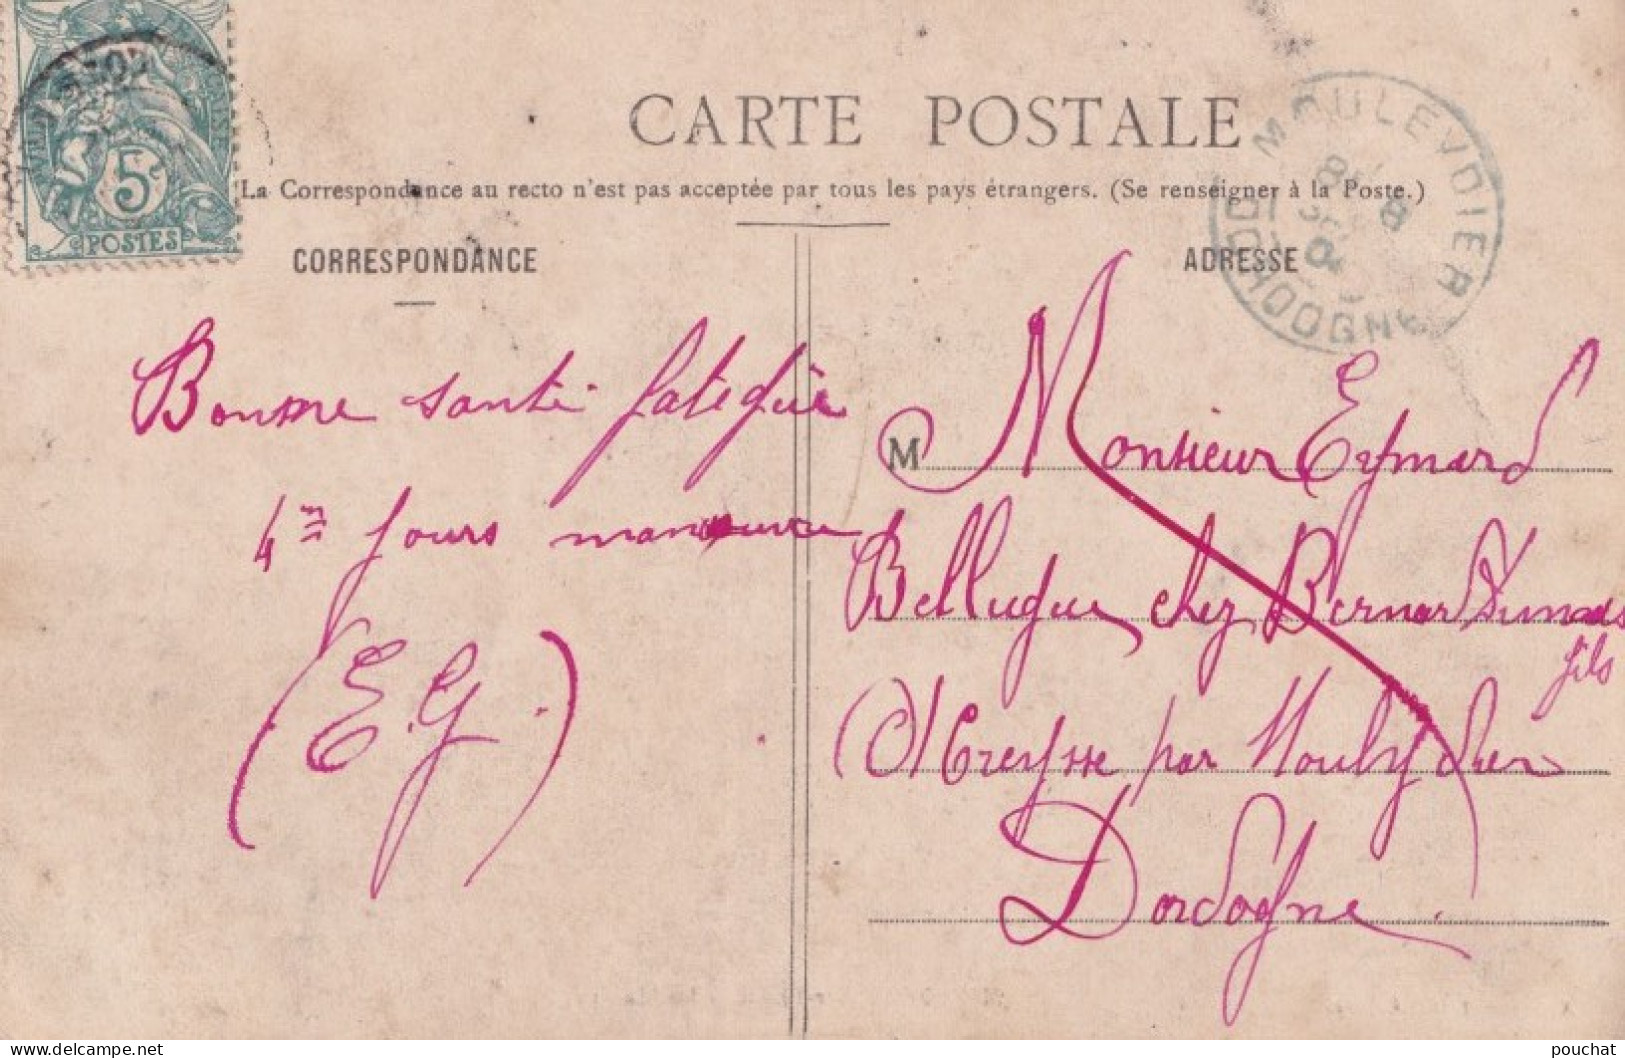 5c
POSTES
CARTE POSTALE
La Correspondance au recto n'est pas acceptée par tous les pays étrangers. (Se renseigner à la Poste.)
CORRESPONDANCE
Bonne santé fatigué
4me jours manœuvre
(E.G.)
ADRESSE
M Monsieur Eymard
Bellugue chez Bernard Dumas
fils
Creysse par Mouleydier
Dordogne
MOULEYDIER
DORDOGNE
www.delcampe.net
pouchat